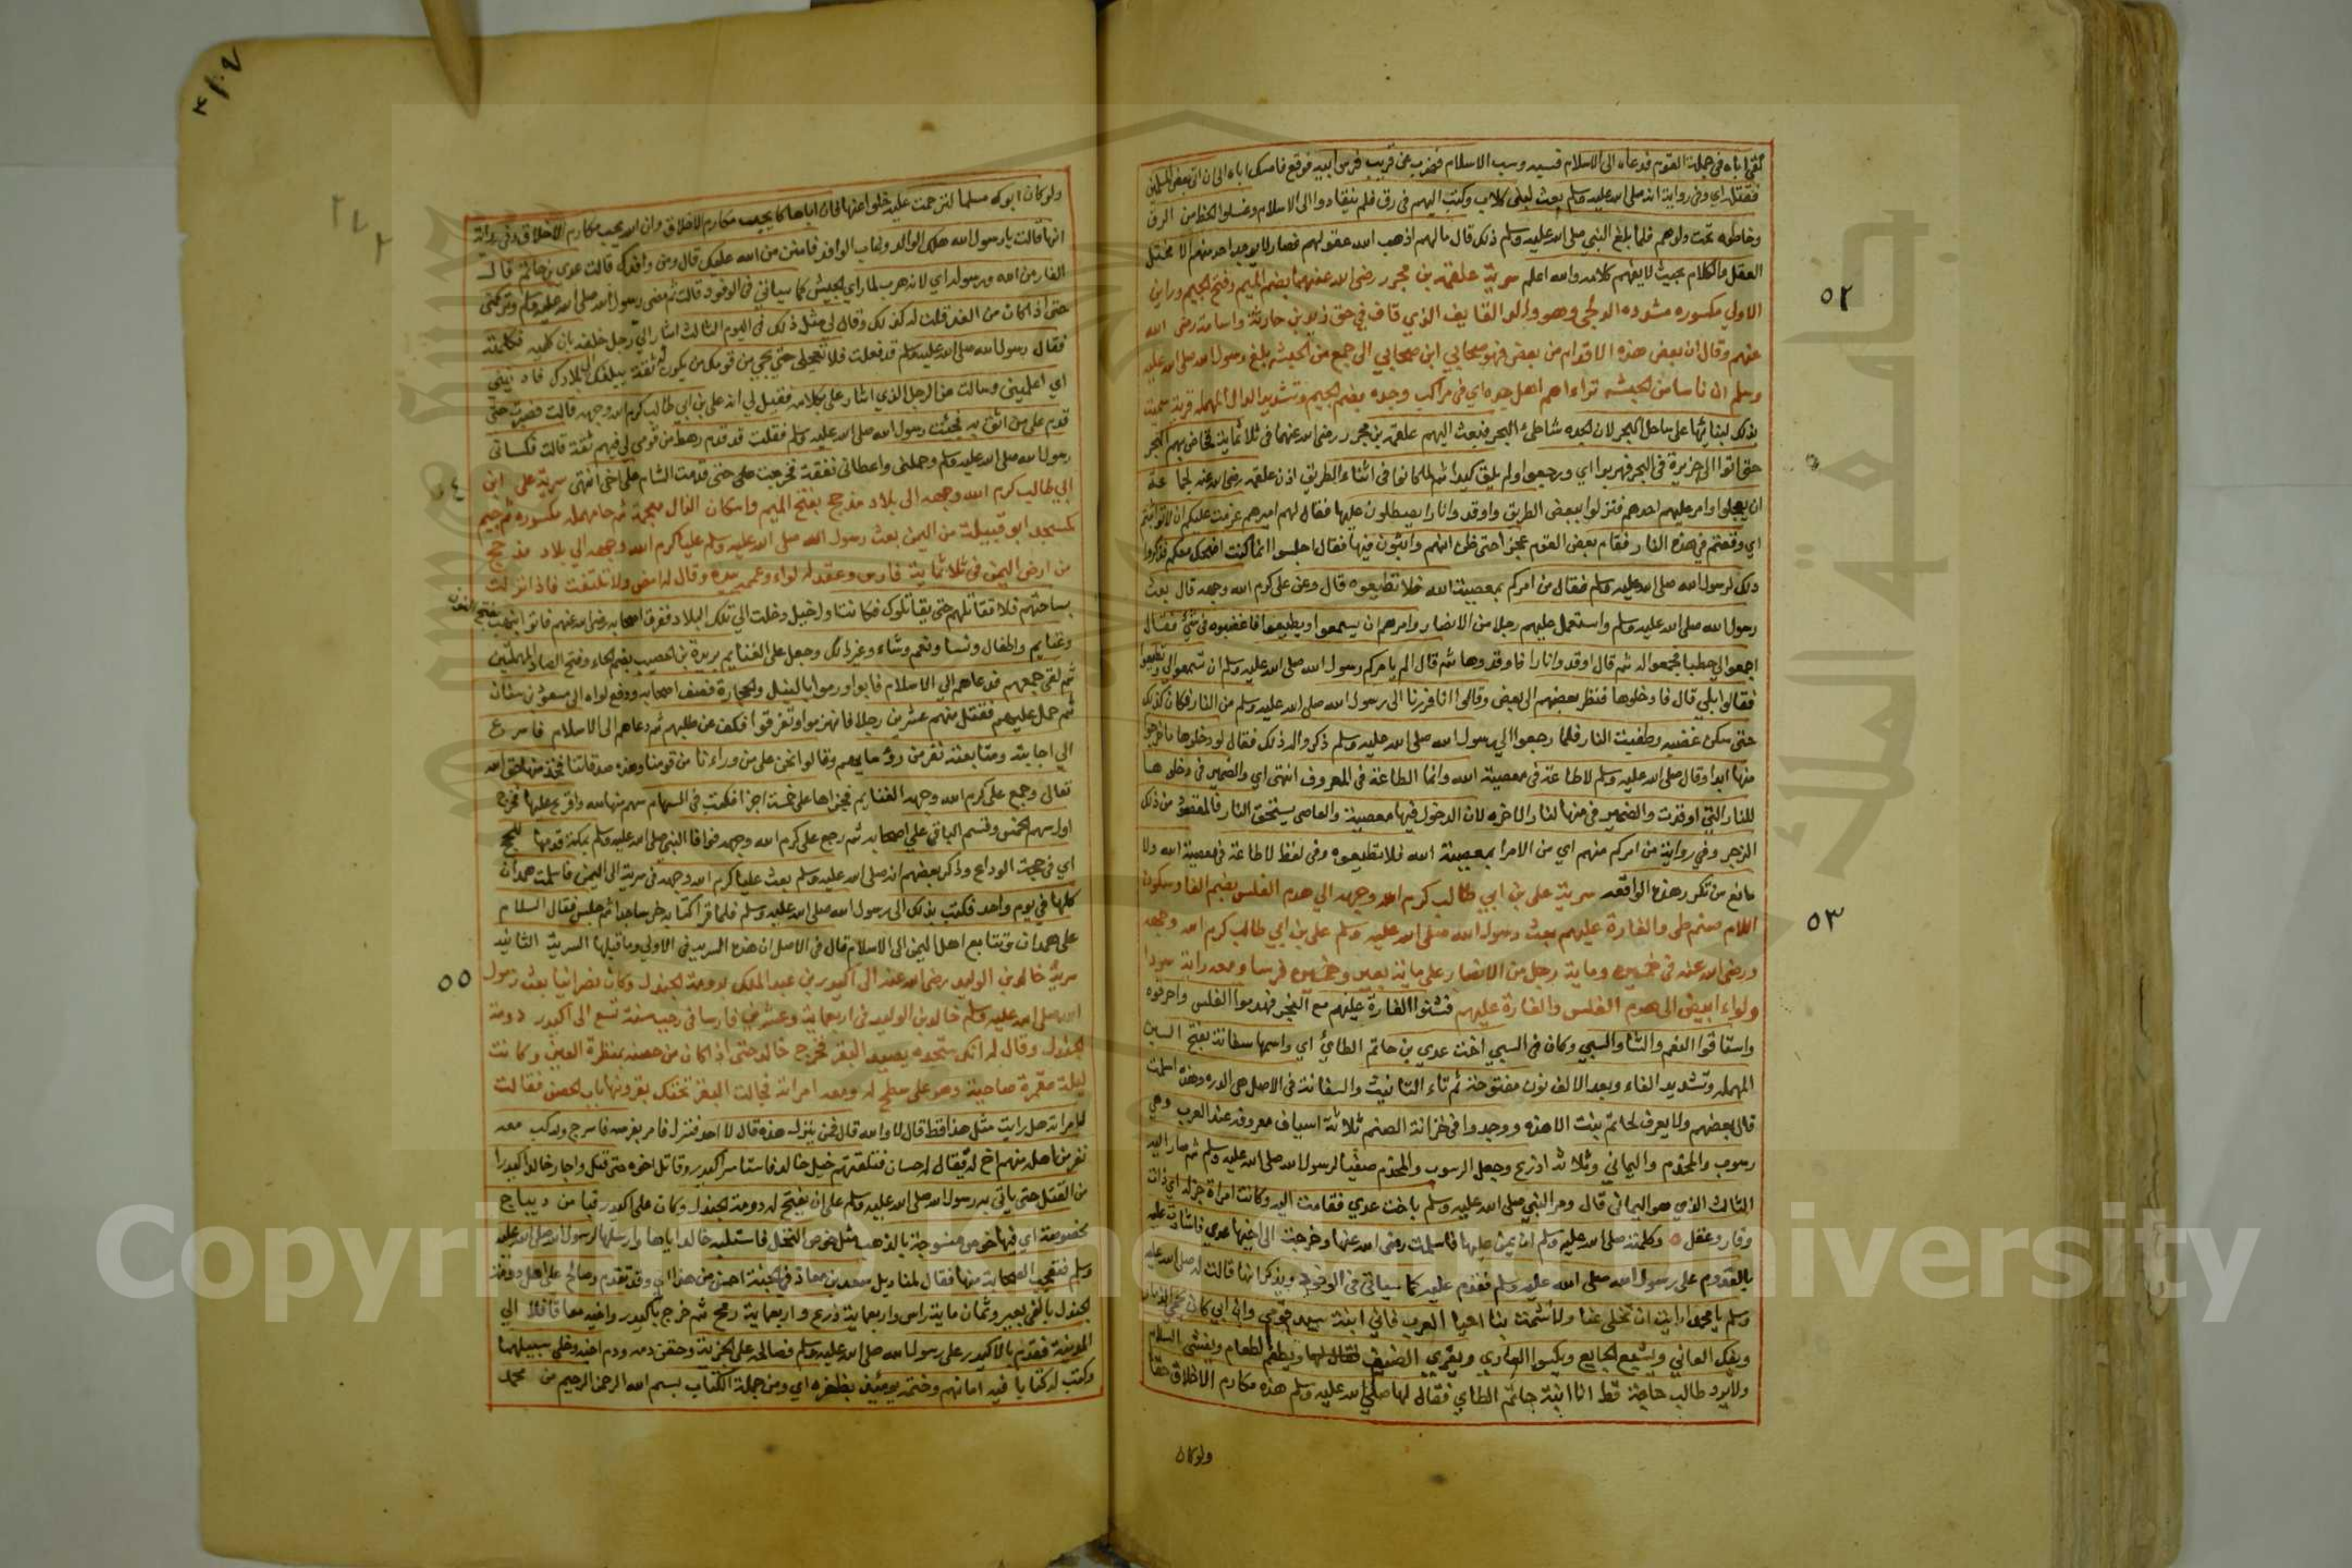 لقى اباه في جملة القوم فدعاه الى الاسلام فسبه وسب الاسلام فضرب عن قريب فرس ابيه فوقع فامسك اباه الى ان اتى بعض المسلمين
فقتله اي وفي رواية انه صلى الله عليه وسلم بعث لبني كلاب وكتب اليهم في رق فلم ينقادوا الى الاسلام وغسلوا الخط من الرق
وخاطوه تحت دلوهم فلما بلغ النبي صلى الله عليه وسلم ذلك قال مالهم اذهب الله عقولهم فصار لا يوجد احد منهم الا مختل
العقل والكلام بحيث لا يفهم كلامه والله اعلم سرية علقمة بن مجزر رضي الله عنهما بضم الميم وفتح الجيم وزاين
الاولى مكسوره مشدده المدلجي وهو ولد القايف الذي قاف في حق زيد بن حارثة واسامة رضي الله
عنهم وقال ان بعض هذه الاقدام من بعض فهو صحابي ابن صحابي الى جمع من الحبشه بلغ رسول الله صلى الله عليه
وسلم ان ناسا من الحبشه تراءاهم اهل جده اي في مراكب وجده بضم الجيم وتشديد الدال المهمله قرية سميت
بذلك لبنايها على ساحل البحر لان الجده شاطئ البحر فبعث اليهم علقمة بن مجزر رضي الله عنهما في ثلاثماية فخاض بهم البحر
حتى اتوا الى جزيرة في البحر فهربوا اي ورجعوا ولم يلق كيدا ثم لما كانوا في اثناء الطريق اذن علقمه رضي الله عنه لجماعة
ان يعجلوا وامر عليهم احدهم فنزلوا ببعض الطريق واوقدوا نارا يصطلون عليها فقال لهم اميرهم عزمت عليكم الا تواثبتم
اي وقعتم في هذه النار فقام بعض القوم حتى ظن انهم واثبون فيها فقال اجلسوا انما كنت اضحك معكم فذكروا
ذلك لرسول الله صلى الله عليه وسلم فقال من امركم بمعصية الله فلا تطيعوه قال وعن علي كرم الله وجهه قال بعث
رسول الله صلى الله عليه وسلم واستعمل عليهم رجلا من الانصار وامرهم ان يسمعوا ويطيعوا فاغضبوه في شئ فقال
اجمعوا لي حطبا فجمعوا له ثم قال اوقدوا نارا فاوقدوها ثم قال الم يامركم رسول الله صلى الله عليه وسلم ان تسمعوا لي وتطيعوا
فقالوا بلي قال فادخلوها فنظر بعضهم الى بعض وقالوا انا فررنا الى رسول الله صلى الله عليه وسلم من النار فكان كذلك
حتى سكن غضبه وطفيت النار فلما رجعوا الى رسول الله صلى الله عليه وسلم ذكروا له ذلك فقال لو دخلوها ما خرجوا
منها ابدا وقال صلى الله عليه وسلم لا طاعة في معصية الله وانما الطاعة في المعروف انتهى اي والضمير في دخلوها
للنار التي اوقدت والضمير في منها لنار الاخره لان الدخول فيها معصية والعاصي يستحق النار فالمقصود من ذلك
الزجر وفي رواية من امركم منهم اي من الامرا بمعصية الله فلا تطيعوه وفي لفظ لا طاعة في معصية الله ولا
مانع من تكرر هذه الواقعه سرية علي بن ابي طالب كرم الله وجهه الى هدم الفلس بضم الفا وسكون
اللام صنم طي والغارة عليهم بعث رسول الله صلى الله عليه وسلم علي بن ابي طالب كرم الله وجهه
ورضي الله عنه في خمسين وماية رجل من الانصار على ماية بعير وخمسين فرسا ومعه راية سودا
ولواء ابيض الى هدم الفلس والغارة عليهم فشنوا الغارة عليهم مع الفجر فهدموا الفلس واحرقوه
واستاقوا النعم والشا والسبي وكان في السبي اخت عدي بن حاتم الطائي اي واسمها سفانة بفتح السين
المهمله وتشديد الفاء وبعد الالف نون مفتوحة ثم تاء التانيث والسفانة في الاصل هي الدره وهذه اسلمت
قال بعضهم ولا يعرف لحاتم بنت الا هذه ووجدوا في خزانة الصنم ثلاثة اسياف معروفه عند العرب وهي
رسوب والمخذم واليماني وثلاثة ادرع وجعل الرسوب والمخذم صفيا لرسول الله صلى الله عليه وسلم ثم صار اليه
الثالث الذي هو اليماني قال ومر النبي صلى الله عليه وسلم باخت عدي فقامت اليه وكانت امراة جزله اي ذات
وقار وعقل وكلمته صلى الله عليه وسلم ان يمن عليها فاسلمت رضي الله عنها وخرجت الى اخيها عدي فاشارت عليه
بالقدوم على رسول الله صلى الله عليه وسلم فقدم عليه كما سياتي في الوفود ويذكر انها قالت له صلى الله عليه
وسلم يا محمد ارايت ان تخلي عنا ولا تشمت بنا احيا العرب فاني ابنة سيد قومي وان ابي كان يحمي الذمار
ويفك العاني ويشبع الجايع ويكسوا العاري ويقري الضيف ويطعم الطعام ويفشي السلام
ولا يرد طالب حاجة قط انا ابنة حاتم الطاي فقال لها صلى الله عليه وسلم هذه مكارم الاخلاق حقا
ولو كان
٥٢
٥٣
ولو كان ابوك مسلما لترحمت عليه خلوا عنها فان اباها كان يحب مكارم الاخلاق وان الله يحب مكارم الاخلاق وفي رواية
انها قالت يا رسول الله هلك الوالد وغاب الوافد فامنن من الله عليك قال ومن وافدك قالت عدي بن حاتم قال
الفار من الله ورسوله اي لانه هرب لما راي الجيش كما سياتي في الوفود قالت ثم مضى رسول الله صلى الله عليه وسلم وتركني
حتى اذا كان من الغد قلت له كذلك وقال لي مثل ذلك وفي اليوم الثالث اشار الي رجل خلفه بان كلميه فكلمته
فقال رسول الله صلى الله عليه وسلم قد فعلت فلا تعجلي حتى يجي من قومك من يكون ثقة يبلغك الى بلادك فاذنيني
اي اعلميني وسالت عن الرجل الذي اشار علي بكلامه فقيل لي انه علي بن ابي طالب كرم الله وجهه قالت فصبرت حتى
قدم علي من اثق به فجئت رسول الله صلى الله عليه وسلم فقلت قد قدم رهط من قومي لي فيهم ثقة قالت فكساني
رسول الله صلى الله عليه وسلم وحملني واعطاني نفقة فخرجت حتى قدمت الشام على اخي انتهى سرية علي ابن
ابي طالب كرم الله وجهه الى بلاد مذحج بفتح الميم واسكان الذال معجمة ثم حا مهمله مكسوره ثم جيم
كمسجد ابو قبيلة من اليمن بعث رسول الله صلى الله عليه وسلم عليا كرم الله وجهه الى بلاد مذحج
من ارض اليمن في ثلاثماية فارس وعقد له لواء وعممه بيده وقال له امض ولا تلتفت فاذا نزلت
بساحتهم فلا تقاتلهم حتى يقاتلوك فكانت اول خيل دخلت الى تلك البلاد ففرق اصحابه رضي الله عنهم فاتوا بنهب بفتح النون
وغنايم واطفال ونسا ونعم وشاء وغير ذلك وجعل على الغنايم بريدة بن الحصيب بضم الحاء وفتح الصاد المهملتين
ثم لقى جمعهم فدعاهم الى الاسلام فابوا ورموا بالنبل والحجارة فصف اصحابه ودفع لواه الى مسعود بن سنان
ثم حمل عليهم فقتل منهم عشرين رجلا فانهزموا وتفرقوا فكف عن طلبهم ثم دعاهم الى الاسلام فاسرع
الى اجابته ومتابعته نفر من رؤسايهم وقالوا نحن على من وراءنا من قومنا وهذه صدقاتنا فخذ منها حق الله
تعالى وجمع علي كرم الله وجهه الغنايم فجزاها على خمسة اجزا فكتب في السهام سهم منها لله واقرع عليها فخرج
اول سهم الخمس وقسم الباقي على اصحابه ثم رجع علي كرم الله وجهه فوافا النبي صلى الله عليه وسلم بمكة قدمها للحج
اي في حجة الوداع وذكر بعضهم انه صلى الله عليه وسلم بعث عليا كرم الله وجهه في سرية الى اليمن فاسلمت همدان
كلها في يوم واحد فكتب بذلك الى رسول الله صلى الله عليه وسلم فلما قرا كتابه خر ساجدا ثم جلس فقال السلام
على همدان وتتابع اهل اليمن الى الاسلام قال في الاصل ان هذه السرية هي الاولى وما قبلها السرية الثانيه
سرية خالد بن الوليد رضي الله عنه الى اكيدر بن عبد الملك بدومة الجندل وكان نصرانيا بعث رسول
الله صلى الله عليه وسلم خالد بن الوليد في اربعماية وعشرين فارسا في رجب سنة تسع الى اكيدر دومة
الجندل وقال له انك ستجده يصيد البقر فخرج خالد حتى اذا كان من حصنه بمنظرة العين وكانت
ليلة مقمرة صاحية وهو على سطح له ومعه امراته فجاءت البقر تحتك بقرونها باب الحصن فقالت
له امراته هل رايت مثل هذا قط قال لا والله قال فمن يترك هذه قال لا احد فنزل فامر بفرسه فاسرج وركب معه
نفر من اهله منهم اخ له يقال له حسان فتلقتهم خيل خالد فاستاسر اكيدر وقاتل اخوه حتى قتل واجار خالد اكيدرا
من القتل حتى ياتي به رسول الله صلى الله عليه وسلم على ان يفتح له دومة الجندل وكان على اكيدر قبا من ديباج
مخوصة اي فيها خوص منسوجة بالذهب مثل خوص النخل فاستلبه خالد اياها وارسلها لرسول الله صلى الله عليه
وسلم فتعجب الصحابة منها فقال لمناديل سعد بن معاذ في الجنة احسن من هذا اي وقد تقدم وصالح على اهل دومة
الجندل بالفي بعير وثمان ماية راس واربعماية درع واربعماية رمح ثم خرج باكيدر واخيه معا قافلا الى
المدينة فقدم بالاكيدر على رسول الله صلى الله عليه وسلم فصالحه على الجزية وحقن دمه ودم اخيه وخلى سبيلهما
وكتب له كتابا فيه امانهم وختمه يوميذ بظفره اي ومن جملة الكتاب بسم الله الرحمن الرحيم من محمد
٥٥
Copyright © King Saud University